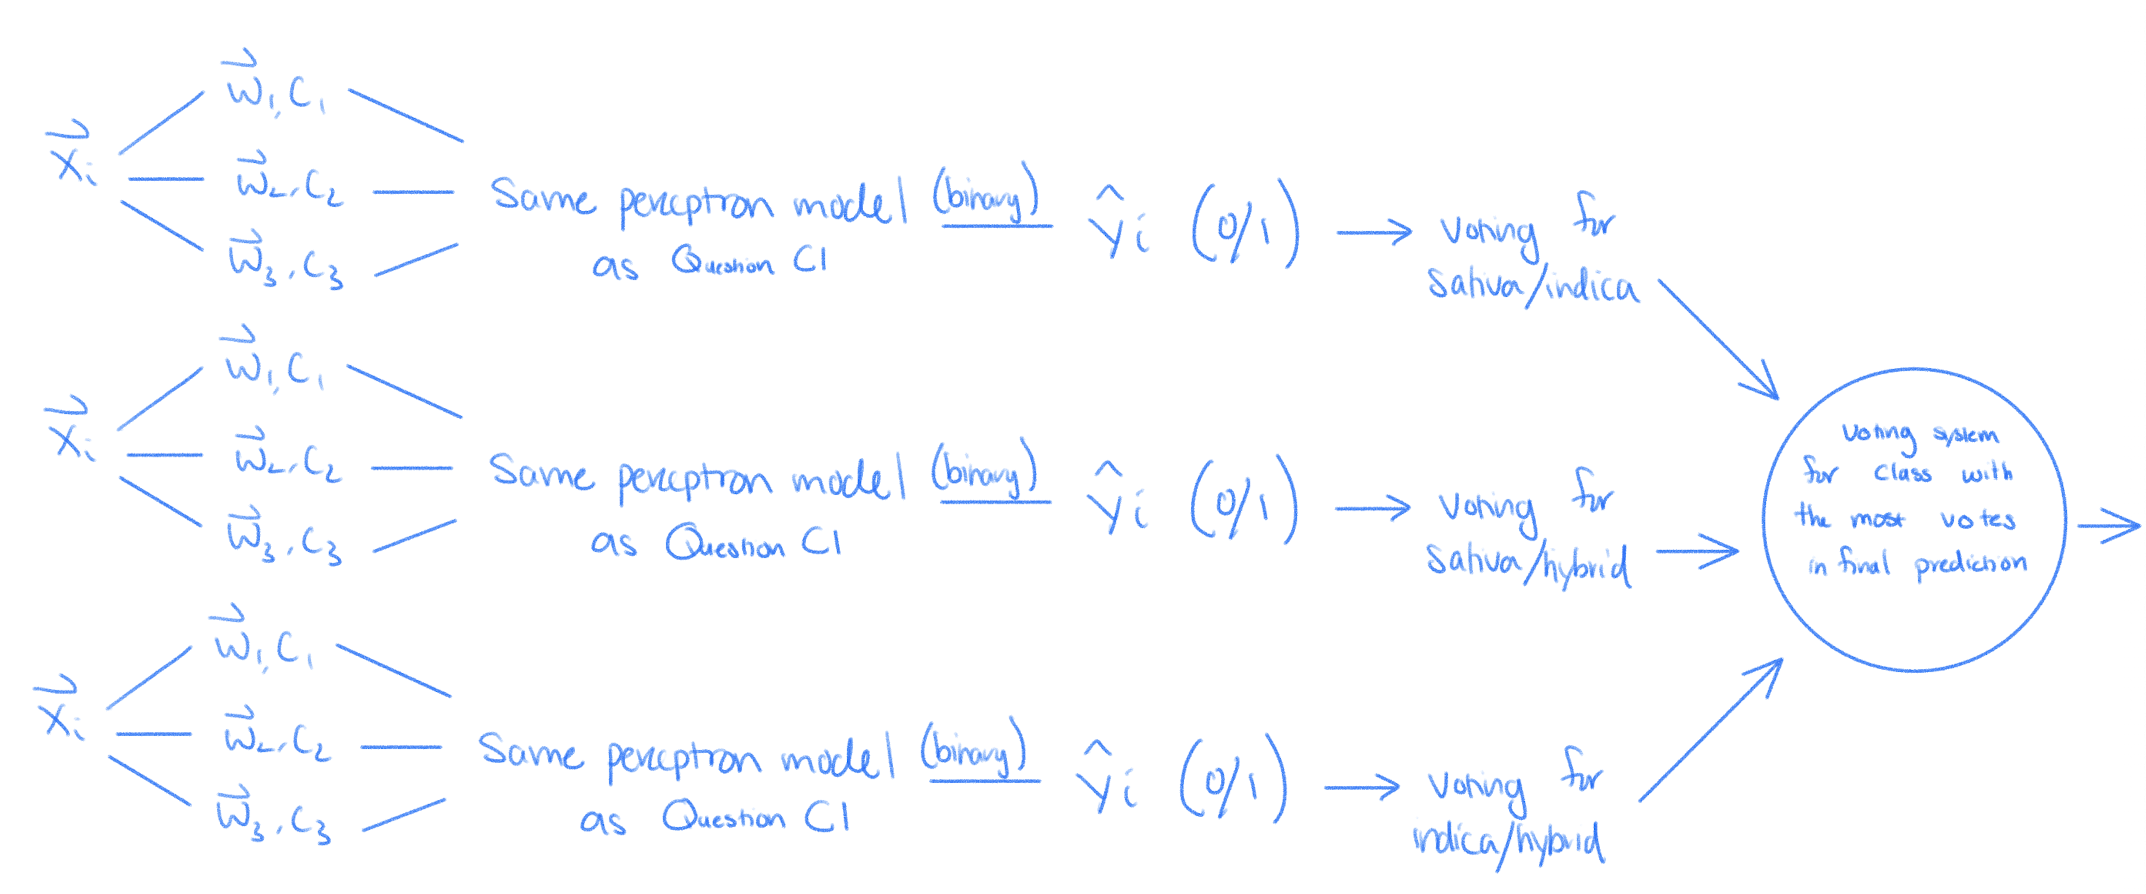 x⃗ᵢ
w⃗₁, c₁
w⃗₂, c₂
w⃗₃, c₃
Same perceptron model (binary)
as Question C1
ŷᵢ (0/1)
→
Voting for
sativa/indica
x⃗ᵢ
w⃗₁, c₁
w⃗₂, c₂
w⃗₃, c₃
Same perceptron model (binary)
as Question C1
ŷᵢ (0/1)
→
Voting for
sativa/hybrid
x⃗ᵢ
w⃗₁, c₁
w⃗₂, c₂
w⃗₃, c₃
Same perceptron model (binary)
as Question C1
ŷᵢ (0/1)
→
Voting for
indica/hybrid
Voting system
for class with
the most votes
in final prediction